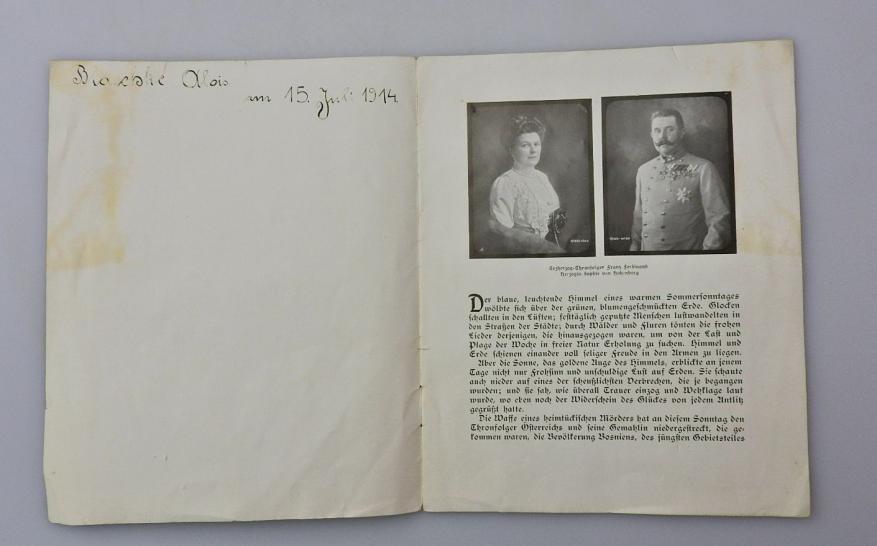 Alois
am 15. Juli 1914
Erzherzog-Thronfolger Franz Ferdinand
Herzogin Sophie von Hohenberg
Der blaue, leuchtende Himmel eines warmen Sommersonntages
wölbte sich über der grünen, blumengeschmückten Erde. Glocken
schallten in den Lüften; festtäglich geputzte Menschen lustwandelten in
den Straßen der Städte; durch Wälder und Fluren tönten die frohen
Lieder derjenigen, die hinausgezogen waren, um von der Last und
Plage der Woche in freier Natur Erholung zu suchen. Himmel und
Erde schienen einander voll seliger Freude in den Armen zu liegen.
Aber die Sonne, das goldene Auge des Himmels, erblickte an jenem
Tage nicht nur Frohsinn und unschuldige Lust auf Erden. Sie schaute
auch nieder auf eines der scheußlichsten Verbrechen, die je begangen
wurden; und sie sah, wie überall Trauer einzog und Wehklage laut
wurde, wo eben noch der Widerschein des Glückes von jedem Antlitz
gegrüßt hatte.
Die Waffe eines heimtückischen Mörders hat an diesem Sonntag den
Thronfolger Österreichs und seine Gemahlin niedergestreckt, die ge-
kommen waren, die Bevölkerung Bosniens, des jüngsten Gebietsteiles